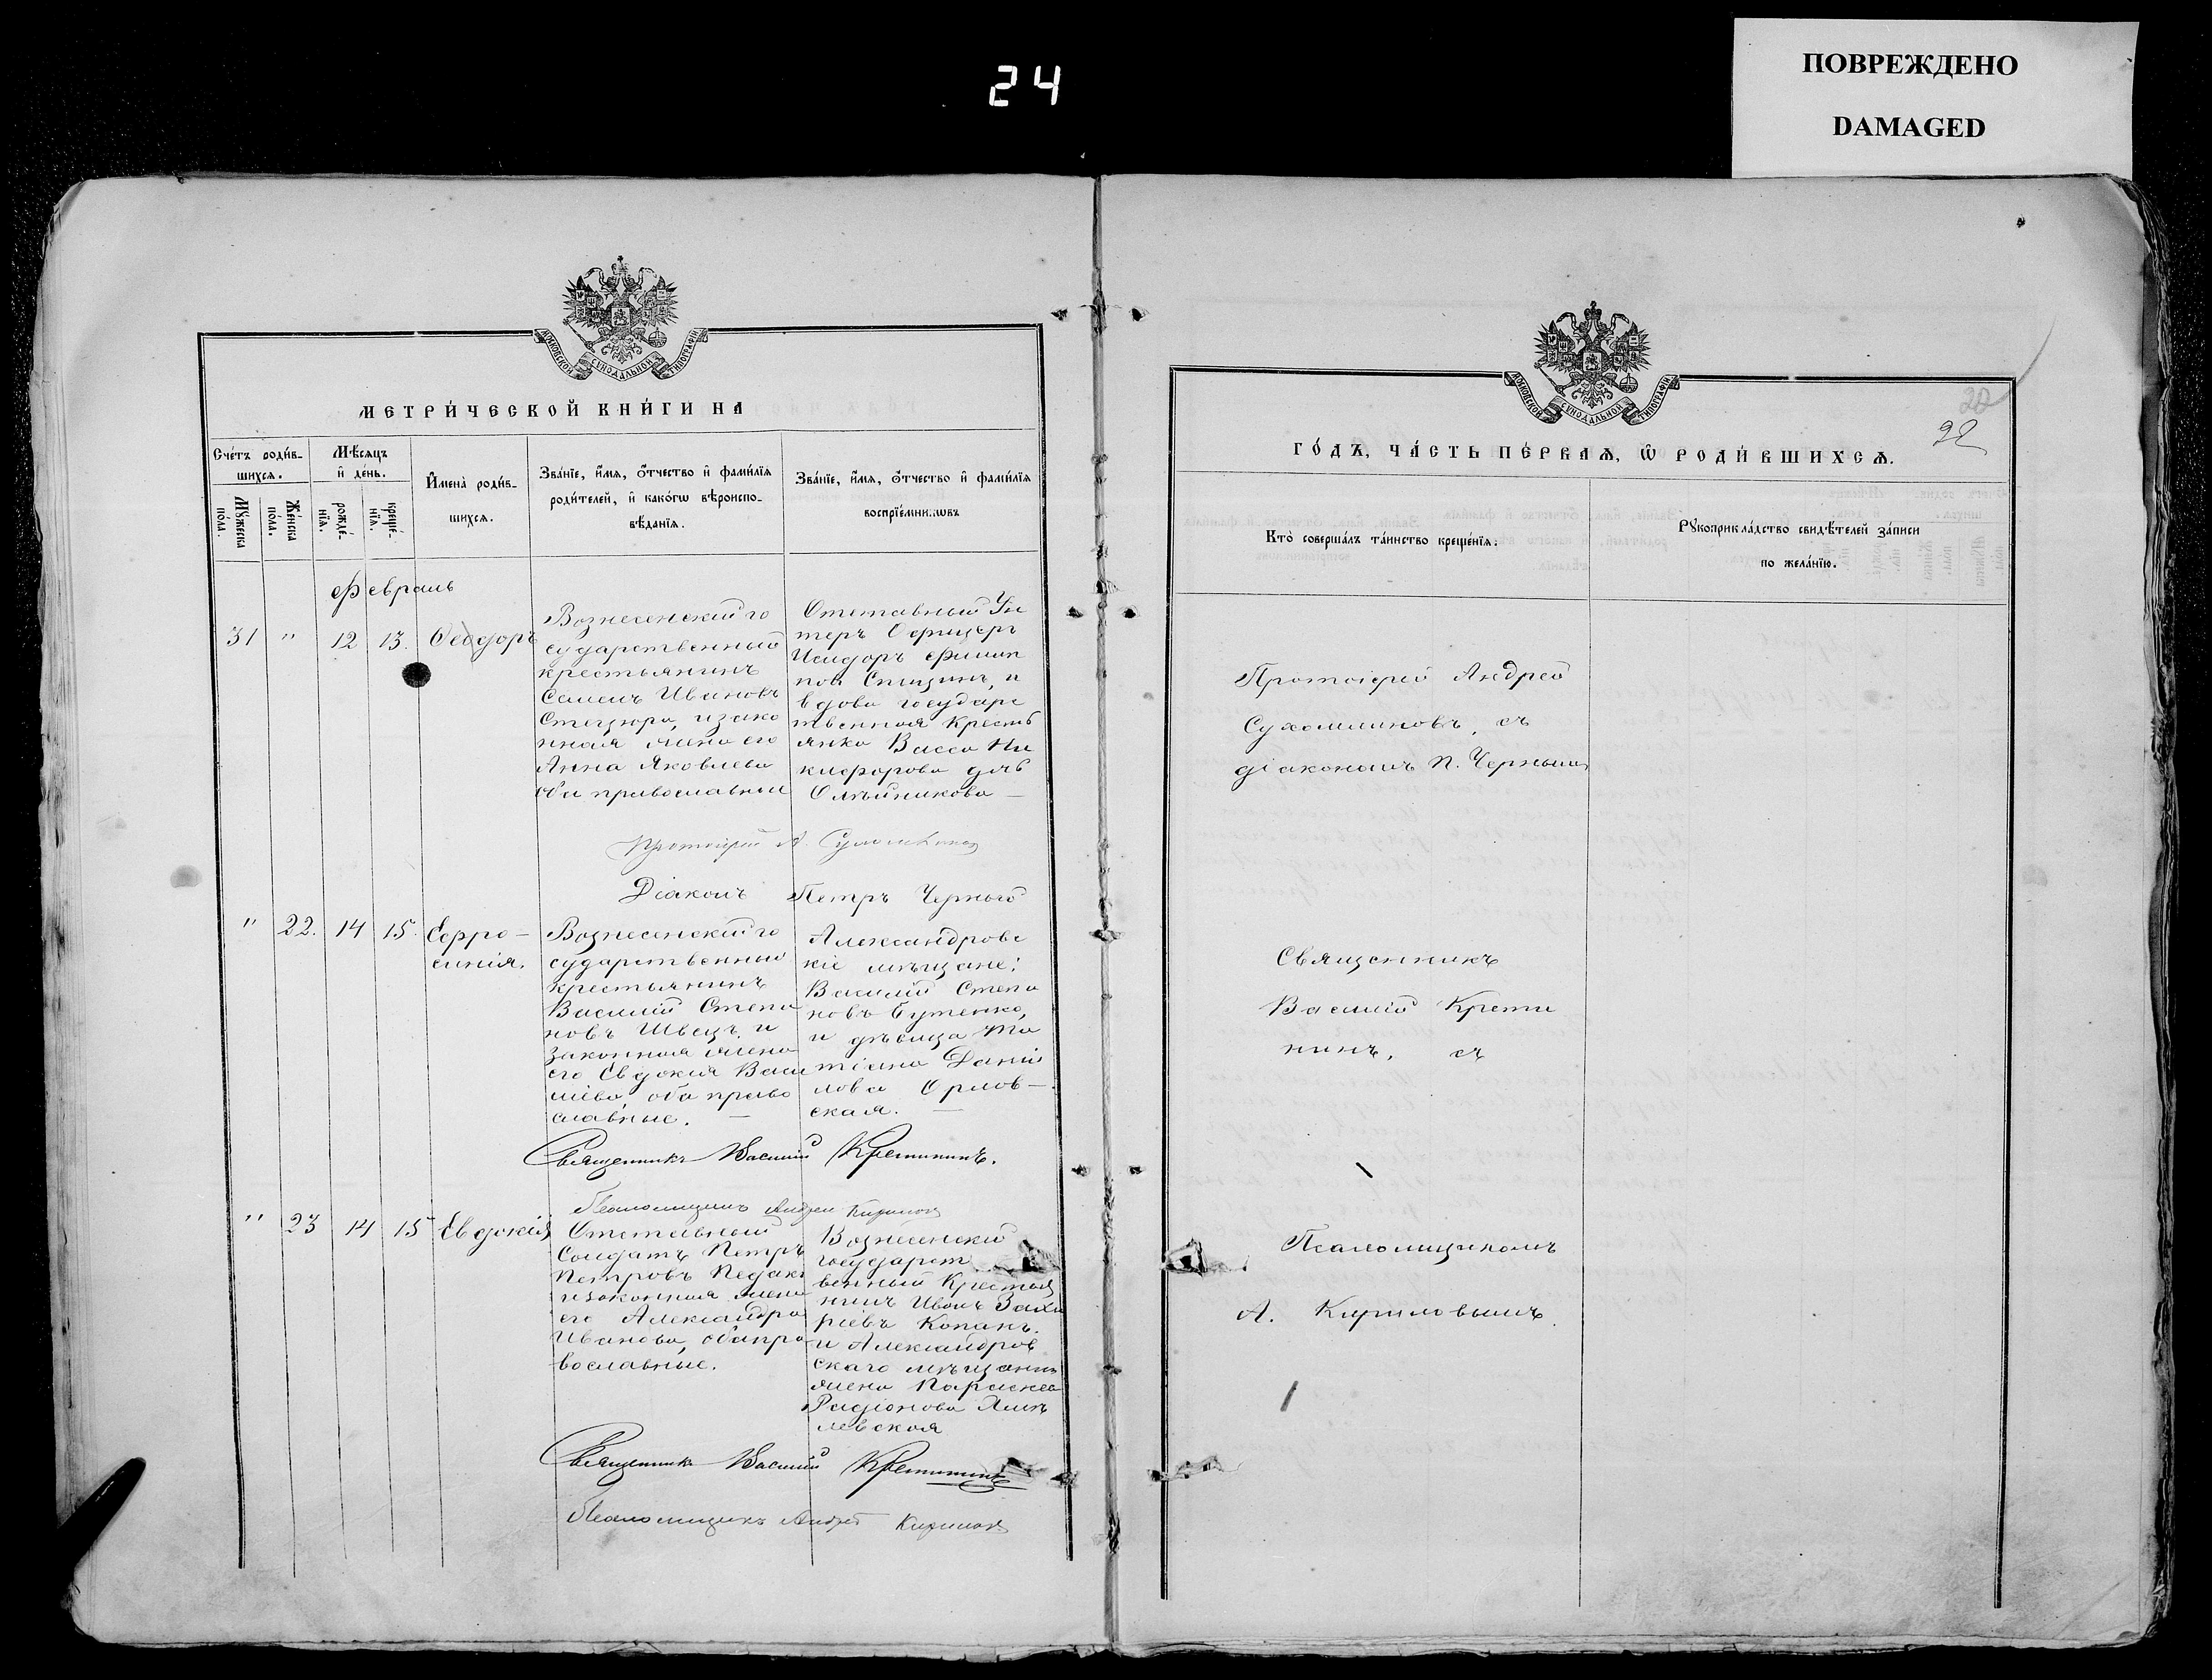 24
ПОВРЕЖДЕНО
DAMAGED
МОСКОВСКОЙ СУНОДАЛЬНОЙ ТИПОГРАФІИ
МЕТРИ́ЧЕСКОЙ КНИ́ГИ НА
Сче́тъ роди́в-
шихсѧ.
Мѣ́сѧцъ
и҆ де́нь.
И҆мена̀ роди́в-
шихсѧ.
Зва́нїе, и҆́мѧ, ѻ҆́тчество и҆ фами́лїѧ
роди́телей, и҆ како́гѡ вѣроиспо-
вѣ́данїѧ.
Зва́нїе, и҆́мѧ, ѻ҆́тчество и҆ фами́лїѧ
воспрїе́мниковъ
Мꙋ́жеска
по́ла.
Же́нска
по́ла.
рожде́-
нїѧ.
креще́-
нїѧ.
Февраль
31 " 12 13. Ѳеодоръ
Вознесенскій го
сударственный
крестьянинъ
Семенъ Ивановъ
Стецюра, и зако
нная жена его
Анна Яковлева
оба православные
Отставный Ун
теръ Офицеръ
Исидоръ Филип
повъ Спицинъ, и
вдова государс
твенная кресть
янка Васса Ни
кифорова дочь
Олѣйникова —
Протоіерей А. Сухомлиновъ
Діаконъ Петръ Черный
" 22. 14 15. Евфро-
синія.
Вознесенскій го
сударственный
крестьянинъ
Василій Степа
новъ Швецъ и
законная жена
его Евдокія Васи
лієва, оба право
славные. —
Александровс
кіе мѣщане:
Василій Степа
новъ Бутенко,
и дѣвица Та
тіана Даніи
лова Орлов-
ская. —
Священникъ Василій Кретининъ.
Псаломщикъ Андрей Кириловъ
" 23 14 15 Евдокія
Отставный
Солдатъ Петръ
Петровъ
и законная жена
его Александра
Иванова, оба пра-
вославные.
Вознесенскій
государст
венный Крестья
нинъ Иванъ Заха
ріевъ Копакъ.
и Александров
скаго мѣщанина
жена Параскева
Радіонова
левская
Священникъ Василій Кретининъ
Псаломщикъ Андрей Кириловъ
20
22
МОСКОВСКОЙ СУНОДАЛЬНОЙ ТИПОГРАФІИ
ГО́ДЪ, ЧА́СТЬ ПЕ́РВАѦ, Ѡ҆ РОДИ́ВШИХСѦ.
Кто̀ соверша́лъ та́инство креще́нїѧ:
Рꙋкоприкла́дство свидѣ́телей за́писи
по жела́нїю.
Протоіерей Андрей
Сухомлиновъ, съ
діакономъ П. Чернымъ
Священникъ
Василій Крети
нинъ, съ
Псаломщикомъ
А. Кириловымъ.